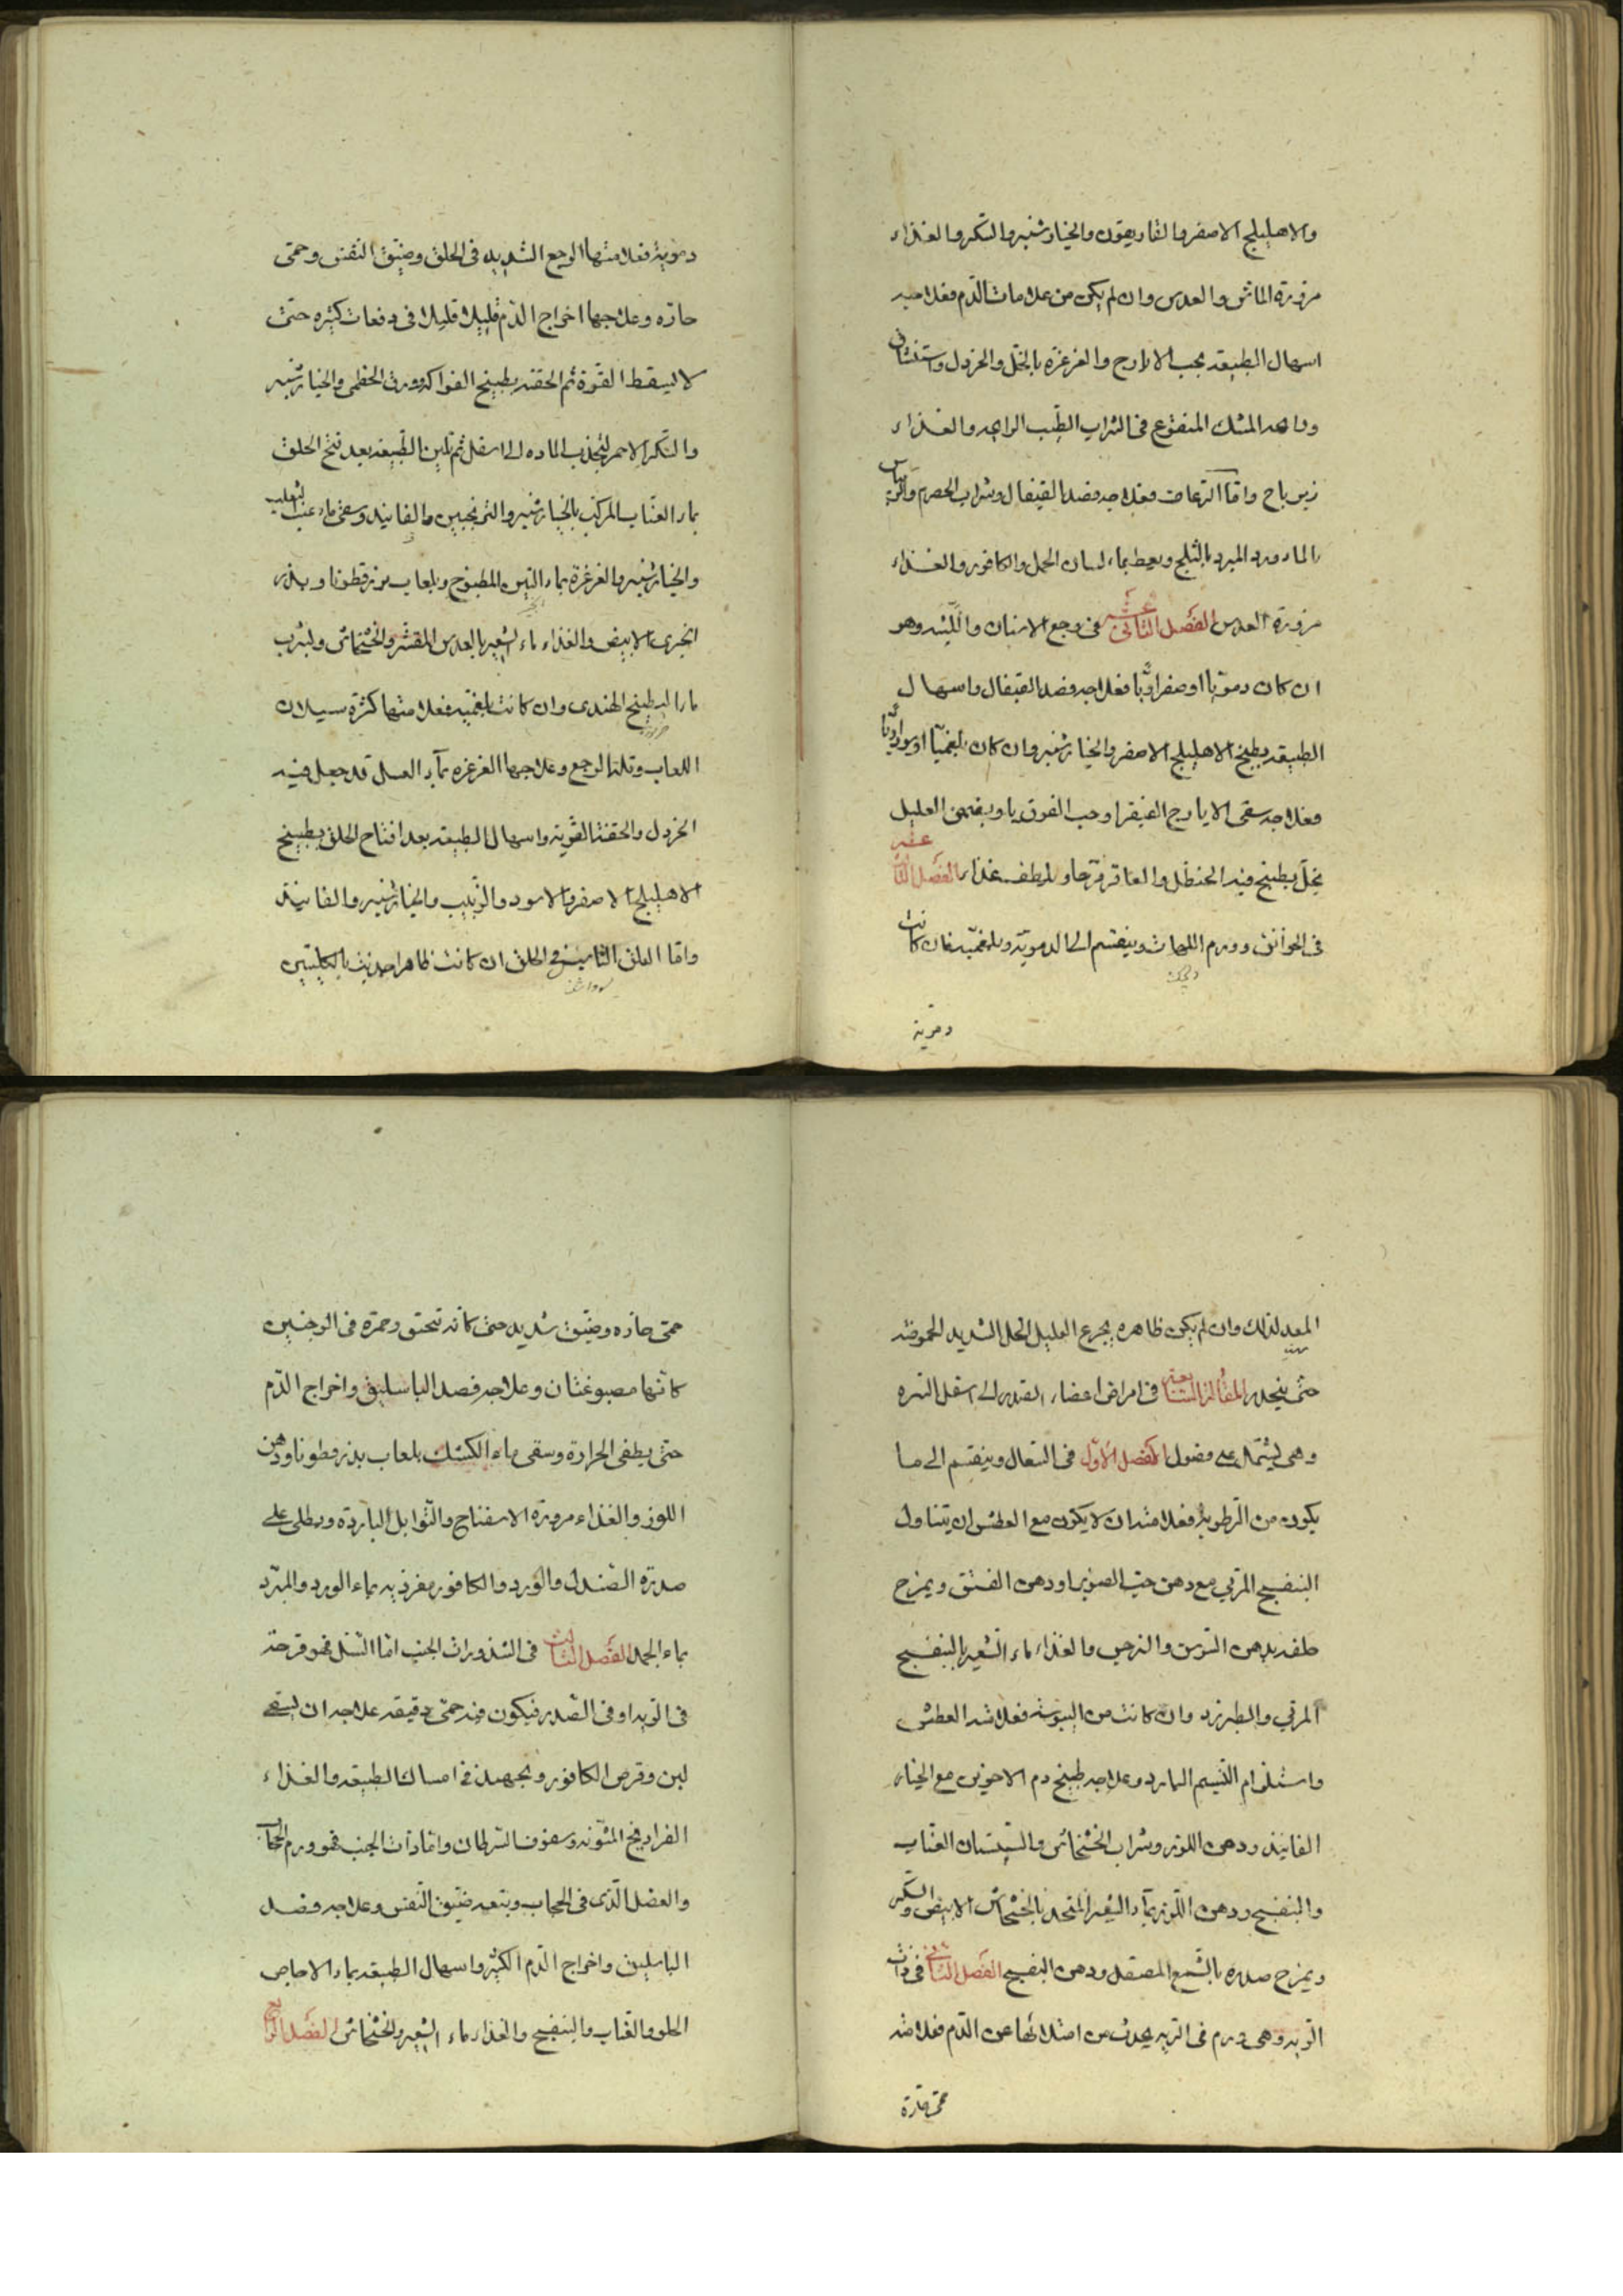 والاهليلج الاصفر والغاريقون والخيارشنبر والسكر والغذاء
مزورة الماش والعدس وان لم يكن من علامات الدم فعلاجه
اسهال الطبيعه بحب الايارج والغرغرة بالخل والخردل واستنشاق
المسك المنقوع في الشراب الطيب الرايحه والغذاء
زيرباج واما الرعاف فعلاجه فصد القيفال وشراب الحصرم والريباس
بالماورد المبرد بالثلج ويعط بماء لسان الحمل والكافور والغذاء
مزورة العدس الفصل الثاني عشر في وجع الاسنان واللثه وهو
ان كان دمويا او صفراويا فعلاجه فصد القيفال واسهال
الطبيعه بطبيخ الاهليلج الاصفر والخيارشنبر وان كان بلغميا او سوداويا
فعلاجه سقى الايارج الفيقرا وحب القوقايا ويتمضمض العليل
بخل يطبخ فيه الحنظل والعاقرقرحا ويلطف غذاء الفصل الثالث عشر
في الخوانق وورم اللهات وينقسم الى الدموية وبلغميه فان كانت
دموية
دموية فعلامتها الوجع الشديد في الحلق وضيق النفس وحمى
حاره وعلاجها اخراج الدم قليلا قليلا في دفعات كثيره حتى
لا يسقط القوة ثم الحقنه بطبيخ الفواكه وورق الخطمى والخيارشنبر
والسكر الاحمر لتجذب الماده الى اسفل ثم تلين الطبيعه بعد فتح الحلق
بماء العناب المركب بالخيارشنبر والترنجبين والفانيد وسقى ماء عنب الثعلب
والخيارشنبر والغرغرة بماء التين المطبوخ وبلعاب بزرقطونا وبذر
انجرى الابيض والغذاء ماء الشعير بالعدس المقشر والخشخاش ويشرب
ماء البطيخ الهندى وان كانت بلغميه فعلامتها كثرة سيلان
اللعاب وقلة الوجع وعلاجها الغرغره بماء العسل قد جعل فيه
الخردل والحقنة القوية واسهال الطبيعه بعد افتتاح الحلق بطبيخ
الاهليلج الاصفر والاسود والزبيب والخيارشنبر والفانيذ
واما العلق الناشبة في الحلق ان كانت ظاهرا جذبت بالكلبتين
المعد لذلك وان لم يكن ظاهره يجرع العليل الخل الشديد الحموضه
حتى ينحدر المقالة السابعة في امراض اعضاء الصدر الى اسفل السره
وهى يشتمل على فصول الفصل الاول في السعال وينقسم الى ما
يكون من الرطوبة فعلامته ان لا يكون مع العطش ان يتناول
البنفسج المربي مع دهن حب الصنوبر او دهن الفستق ويمزح
حلقه بدهن السوسن والنرجس والغذاء ماء الشعير بالبنفسج
المربي والطبرزد وان كانت من اليبوسة فعلامته العطش
واستلزام النسيم البارد وعلاجه طبيخ دم الاخوين مع الخيار
الفانيذ ودهن اللوز وشراب الخشخاش والسبستان العناب
والبنفسج ودهن اللوز بماء الشعير المتخذ بالخشخاش الابيض والسكر
ويمزح صدره بالشمع المصقل ودهن البنفسج الفصل الثاني في ذات
الريه وهى ورم في الريه يحدث من امتلائها عن الدم فعلامته
حمى حارة
حمى حاره وضيق شديد حتى كانه يختنق وحمرة في الوجنتين
كانها مصبوغتان وعلاجه فصد الباسليق واخراج الدم
حتى يطفى الحرارة وسقى ماء الكشك بلعاب بذرقطونا ودهن
اللوز والغذاء مزورة الاسفناج والتوابل الباردة ويطلى على
صدره الصندل والورد والكافور مغرذ به بماء الورد والمبرد
بماء الجمد الفصل الثالث في السل وذات الجنب اما السل فهو قرحة
في الريه او في الصدر فيكون منه حمى دقيقه علاجه ان يسقى
لبن وقرص الكافور ويجهد في امساك الطبيعه والغذاء
الفراريخ المشويه وسفوف السرطان واما ذات الجنب فهو ورم الحجاب
والعضل الذى في الحجاب ويتبعه ضيق النفس وعلاجه فصد
الباسليق واخراج الدم الكثير واسهال الطبيعه بماء الاجاص
الحلو والعناب والبنفسج والغذاء ماء الشعير والخشخاش الفصل الرابع